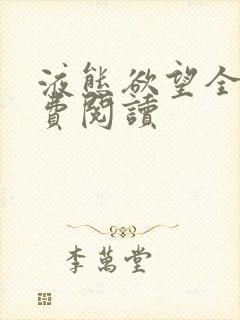 液態欲望全
費閱讀
李萬堂